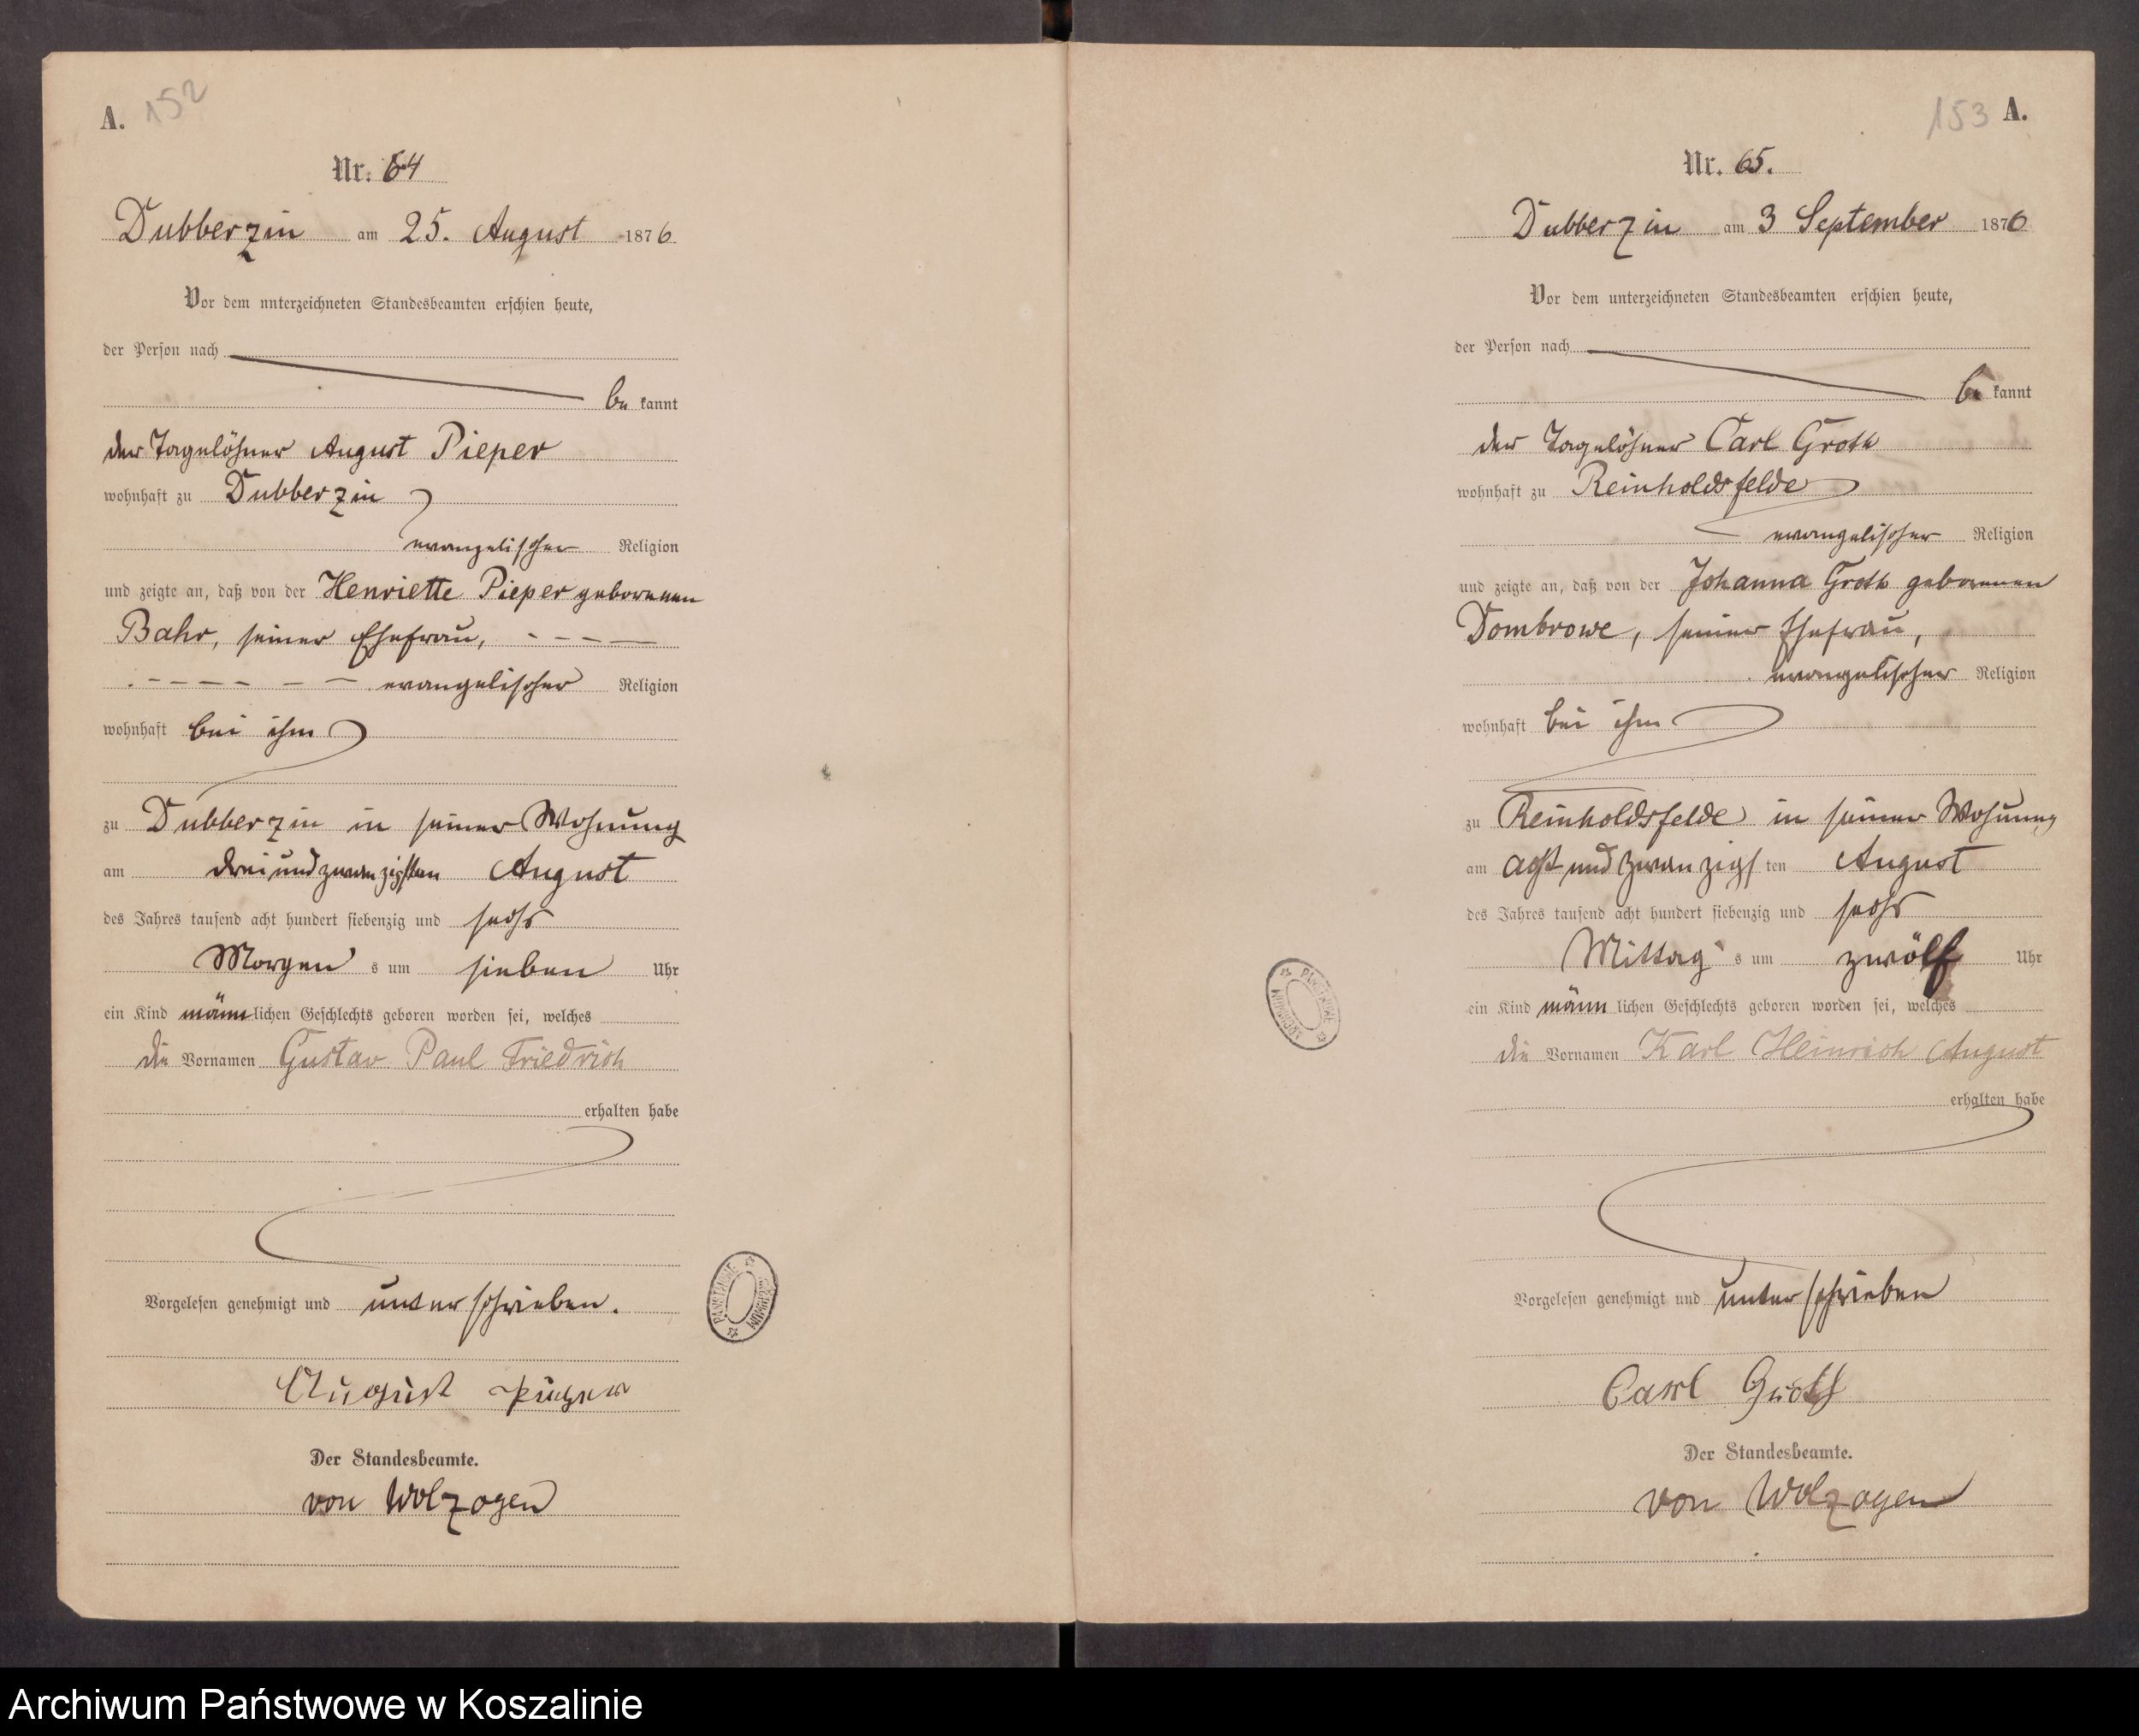 A. 152
Nr. 64
Dubberzin am 25. August 1876
Vor dem unterzeichneten Standesbeamten erschien heute,
der Person nach
be kannt
der Tagelöhner August Pieper
wohnhaft zu Dubberzin
evangelischer Religion
und zeigte an, daß von der Henriette Pieper geborenen
Bahr, seiner Ehefrau, - - - —
- - - - - - evangelischer Religion
wohnhaft bei ihm
zu Dubberzin in seiner Wohnung
am dreiundzwanzigsten August
des Jahres tausend acht hundert siebenzig und sechs
Morgen s um sieben Uhr
ein Kind männ lichen Geschlechts geboren worden sei, welches
die Vornamen Gustav Paul Friedrich
erhalten habe
Vorgelesen genehmigt und unterschrieben.
August Pieper
Der Standesbeamte.
von Wolzogen
PAŃSTWOWE ARCHIWUM
153 A.
Nr. 65.
Dubberzin am 3 September 1876
Vor dem unterzeichneten Standesbeamten erschien heute,
der Person nach
be kannt
der Tagelöhner Carl Groth
wohnhaft zu Reinholdsfelde
evangelischer Religion
und zeigte an, daß von der Johanna Groth geborenen
Dombrowe, seiner Ehefrau,
evangelischer Religion
wohnhaft bei ihm
zu Reinholdsfelde in seiner Wohnung
am acht und zwanzigs ten August
des Jahres tausend acht hundert siebenzig und sechs
Mittag s um zwölf Uhr
ein Kind männ lichen Geschlechts geboren worden sei, welches
die Vornamen Karl Heinrich August
erhalten habe
Vorgelesen genehmigt und unterschrieben
Carl Groth
Der Standesbeamte.
von Wolzogen
PAŃSTWOWE ARCHIWUM
Archiwum Państwowe w Koszalinie